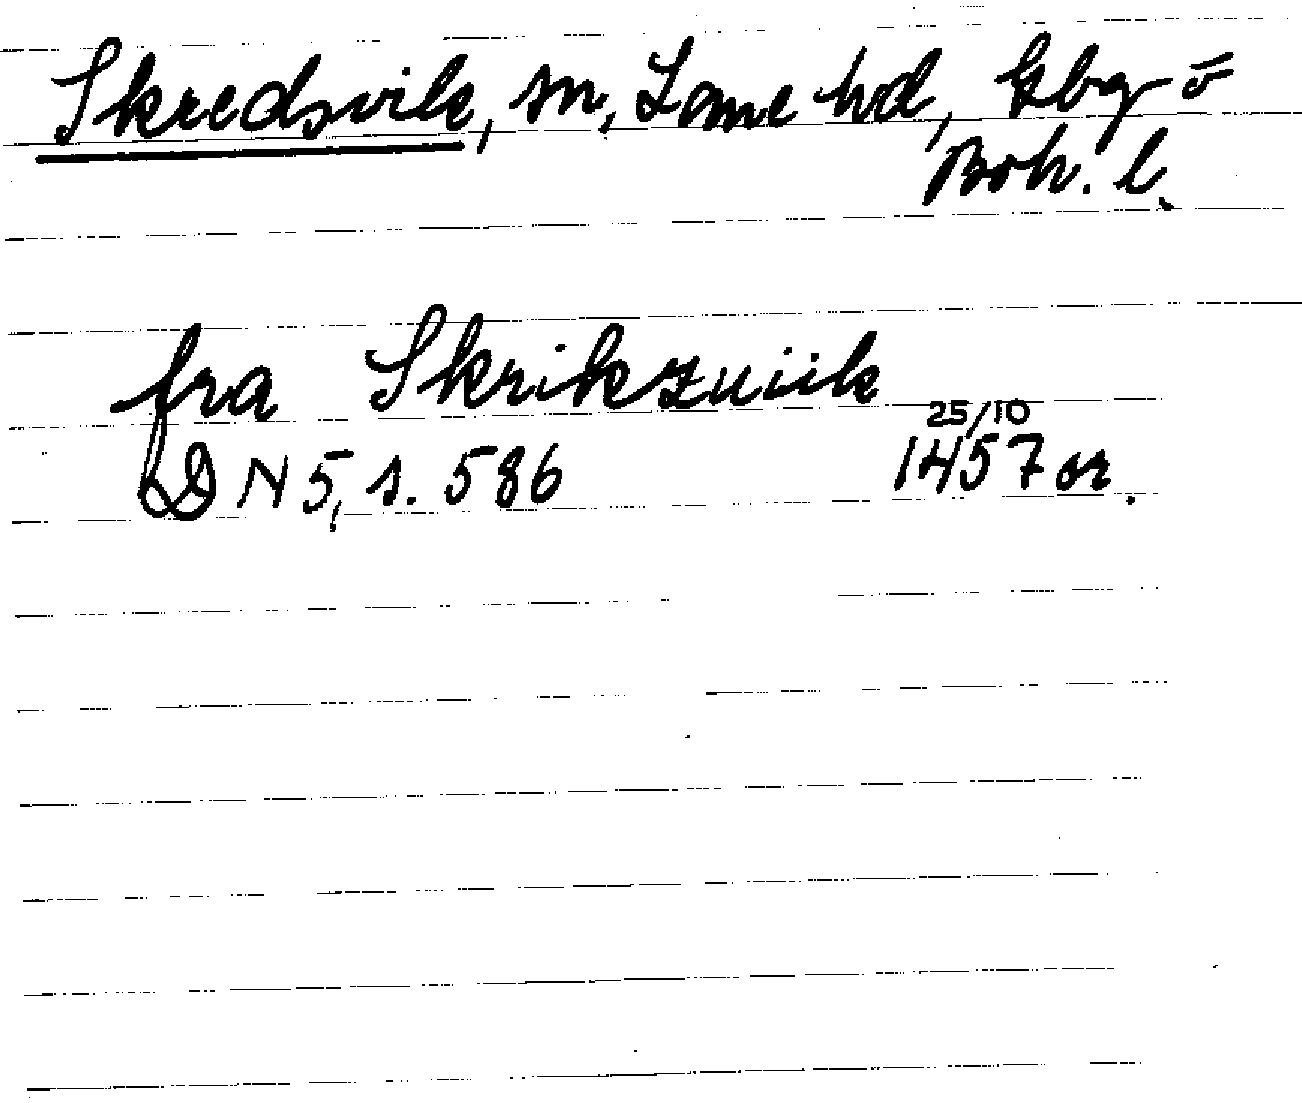 Skredsvik, sn, Lane hd, Gbg o
Boh. l.
fra Skrikzuiik
25/10
DN 5, s. 586 1457 or.